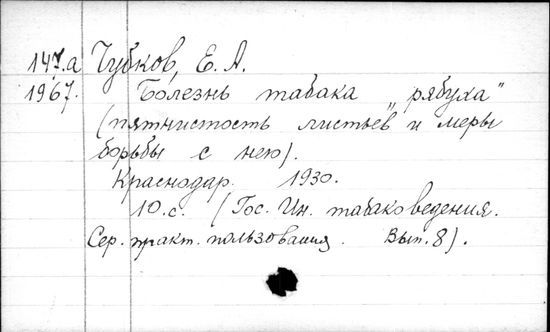 147.а Чубков, Е. А.
1967. Болезнь табака „рябуха"
(пятнистость листьев и меры
борьбы с нею).
Краснодар. 1930.
10.с. (Гос. Ин. табаководения.
Сер. практ. пользования. Вып. 8).